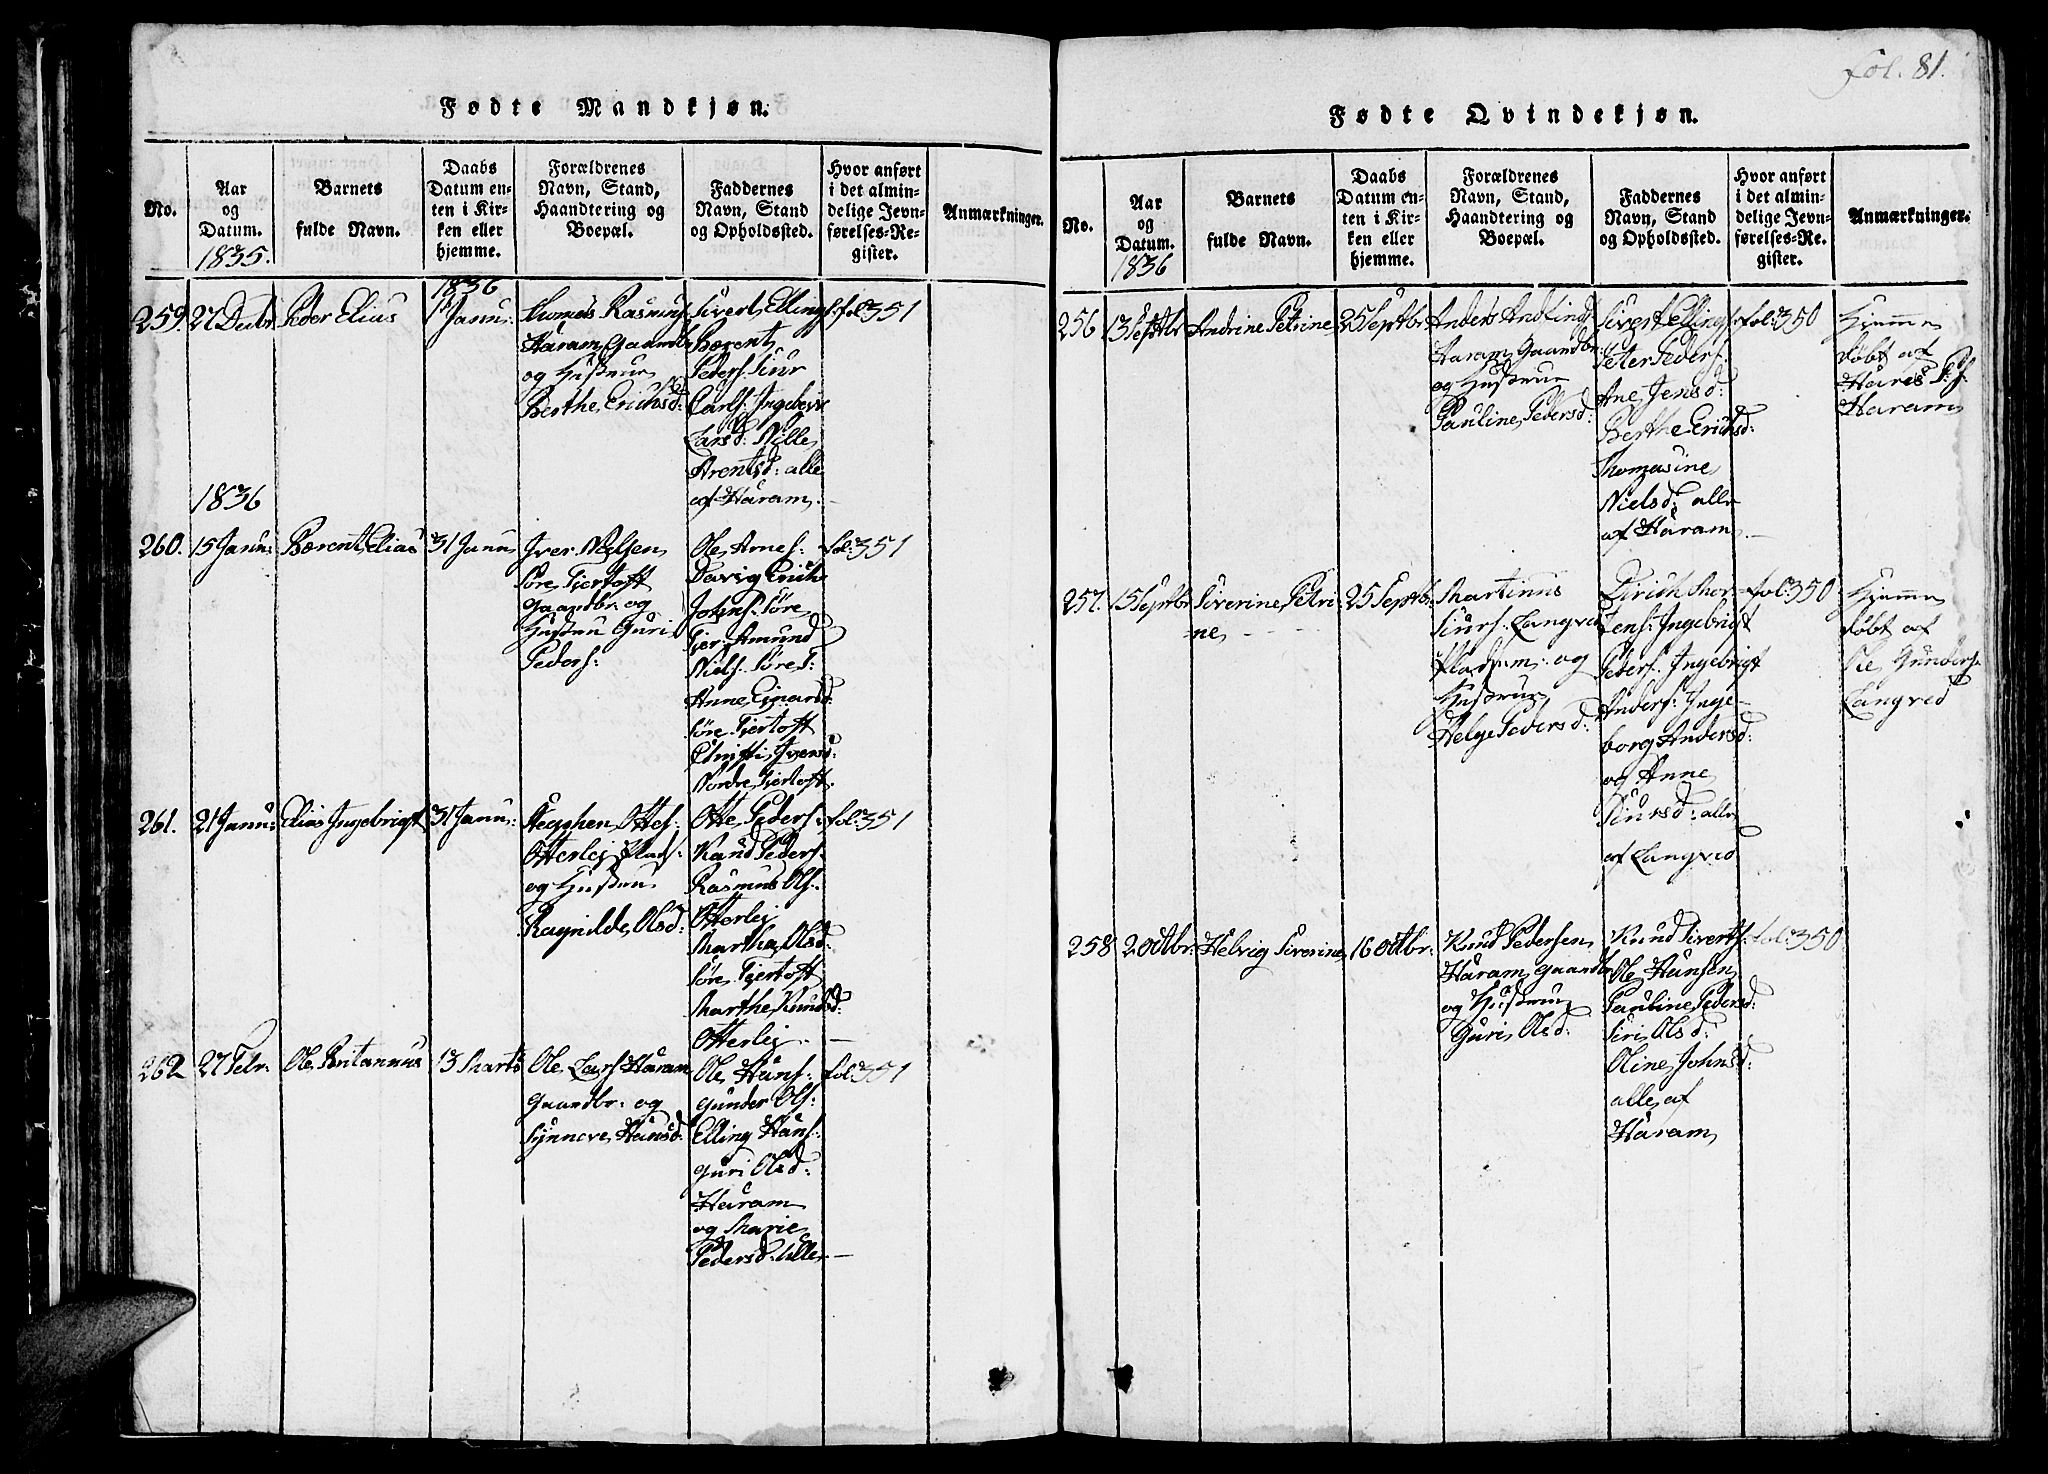 Fødte Mandkjøn.
No.
Aar
og
Datum.
1835.
Barnets
fulde Navn.
Daabs
Datum en-
ten i Kir-
ken eller
hjemme.
Forældrenes
Navn, Stand,
Haandtering og
Boepæl.
Faddernes
Navn, Stand
og Opholdssted.
Hvor anført
i det almin-
delige Jevn-
førelses-Re-
gister.
Anmærkninger.
259.
27 Decbr
Peder Elias
1836
1 Janu:
Thomas Rasmus
Haram Gaardbr
og Hustrue
Berthe Erichsd:
Sivert Ellings:
Bærent
Peders: Siur
Carls: Ingebor
Larsd: Nille
Arentsd: alle
af Haram.
fol: 351
1836
260.
15 Janu:
Bærent Elias
31 Janu
Iver Nielsen
Søre Fiertoft
Gaardbr: og
Hustru Guri
Peders:
Ole Arnes:
Johns: Søre
Fier: Amund
Niels: Søre F:
Anne Einarsd:
Søre Fiertoft
Iversd:
Nordre Fiertoft.
fol: 351
261.
21 Janu:
Elias Ingebrigt
31 Janu:
Stephen Ottes:
Otterlei Plads:
og Hustru
Ragnilde Olsd:
Otte Peders:
Knud Peders:
Rasmus Ols:
Otterlei
Martha Olsd:
Søre Fiertoft
Marthe Knudsd:
Otterlei.
fol: 351
262
27 Febr:
Ole Britannus
13 Marts
Ole Lars: Haram
Gaardbr: og
Synneve Hansd:
Ole Hans:
Gunder Ols:
Elling Hans:
Guri Olsd:
Haram
og Marie
Pedersd: Ulle
fol: 351
fol. 81.
Fødte Qvindekjøn.
No.
Aar
og
Datum.
1836
Barnets
fulde Navn.
Daabs
Datum en-
ten i Kir-
ken eller
hjemme.
Forældrenes
Navn, Stand,
Haandtering og
Boepæl.
Faddernes
Navn, Stand
og Opholdssted.
Hvor anført
i det almin-
delige Jevn-
førelses-Re-
gister.
Anmærkninger.
256
13 Septbr
Andrine Petrine
25 Septbr:
Anders
Haram Gaardbr:
og Hustrue
Pauline Pedersd:
Sivert Ellings:
Peter Peders:
Ane Jensd:
Berthe Erichsd:
Thomasine
Nielsd: alle
af Haram
fol: 350
Hjemme
døbt af
Hares P: f:
Haram
257.
15 Septbr
Siverine Petri-
ne
25 Septbr:
Martinus
Siurs: Langved
Pladsm: og
Hustrue
Helge Pedersd:
Dirich Mor-
tens: Ingebrigt
Peders: Ingebrigt
Anders: Inge-
borg Andersd:
og Anne
Siursd: alle
af Langved
fol: 350
Hjemme
døbt af
Ole Gunders:
Langved
258
2 Octbr:
Helvig Siverine
16 Octbr:
Knud Pedersen
Haram Gaardbr
og Hustrue
Guri Olsd:
Knud Siverts:
Ole Hansen
Pauline Pedersd:
Siri Olsd:
Oline Johnsd:
alle af
Haram
fol: 350